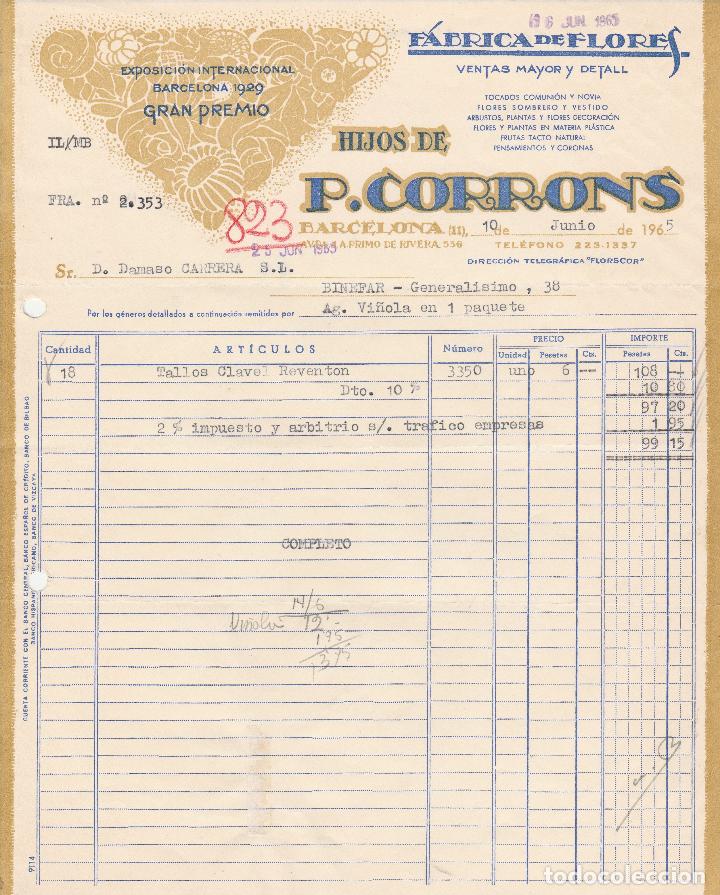 6 JUN. 1965
FÁBRICA DE FLORES
VENTAS MAYOR Y DETALL
EXPOSICIÓN INTERNACIONAL
BARCELONA 1929
GRAN PREMIO
TOCADOS COMUNIÓN Y NOVIA
FLORES SOMBRERO Y VESTIDO
ARBUSTOS, PLANTAS Y FLORES DECORACIÓN
FLORES Y PLANTAS EN MATERIA PLÁSTICA
FRUTAS TACTO NATURAL
PENSAMIENTOS Y CORONAS
IL/MB
HIJOS DE
P. CORRONS
FRA. nº 2.353
823
BARCELONA (11), 10 de Junio de 1965
25 JUN 1965
AVDA. J. A. PRIMO DE RIVERA, 556 TELÉFONO 223-1337
Sr. D. Damaso CARRERA S.L.
DIRECCIÓN TELEGRÁFICA "FLORSCOR"
BINEFAR - Generalisimo , 38
Por los géneros detallados a continuación remitidos por Ag. Viñola en 1 paquete
Cantidad ARTÍCULOS Número PRECIO IMPORTE
Unidad Pesetas Cts. Pesetas Cts.
18 Tallos Clavel Reventon 3350 uno 6 -- 108 --
Dto. 10 % 10 80
97 20
2 % impuesto y arbitrio s/. trafico empresas 1 95
99 15
COMPLETO
14/6
Viñola 12'-
1'95
13'95
CUENTA CORRIENTE CON EL BANCO CENTRAL, BANCO ESPAÑOL DE CRÉDITO, BANCO DE BILBAO
BANCO HISPANO AMERICANO, BANCO DE VIZCAYA
9114
todocoleccion.net